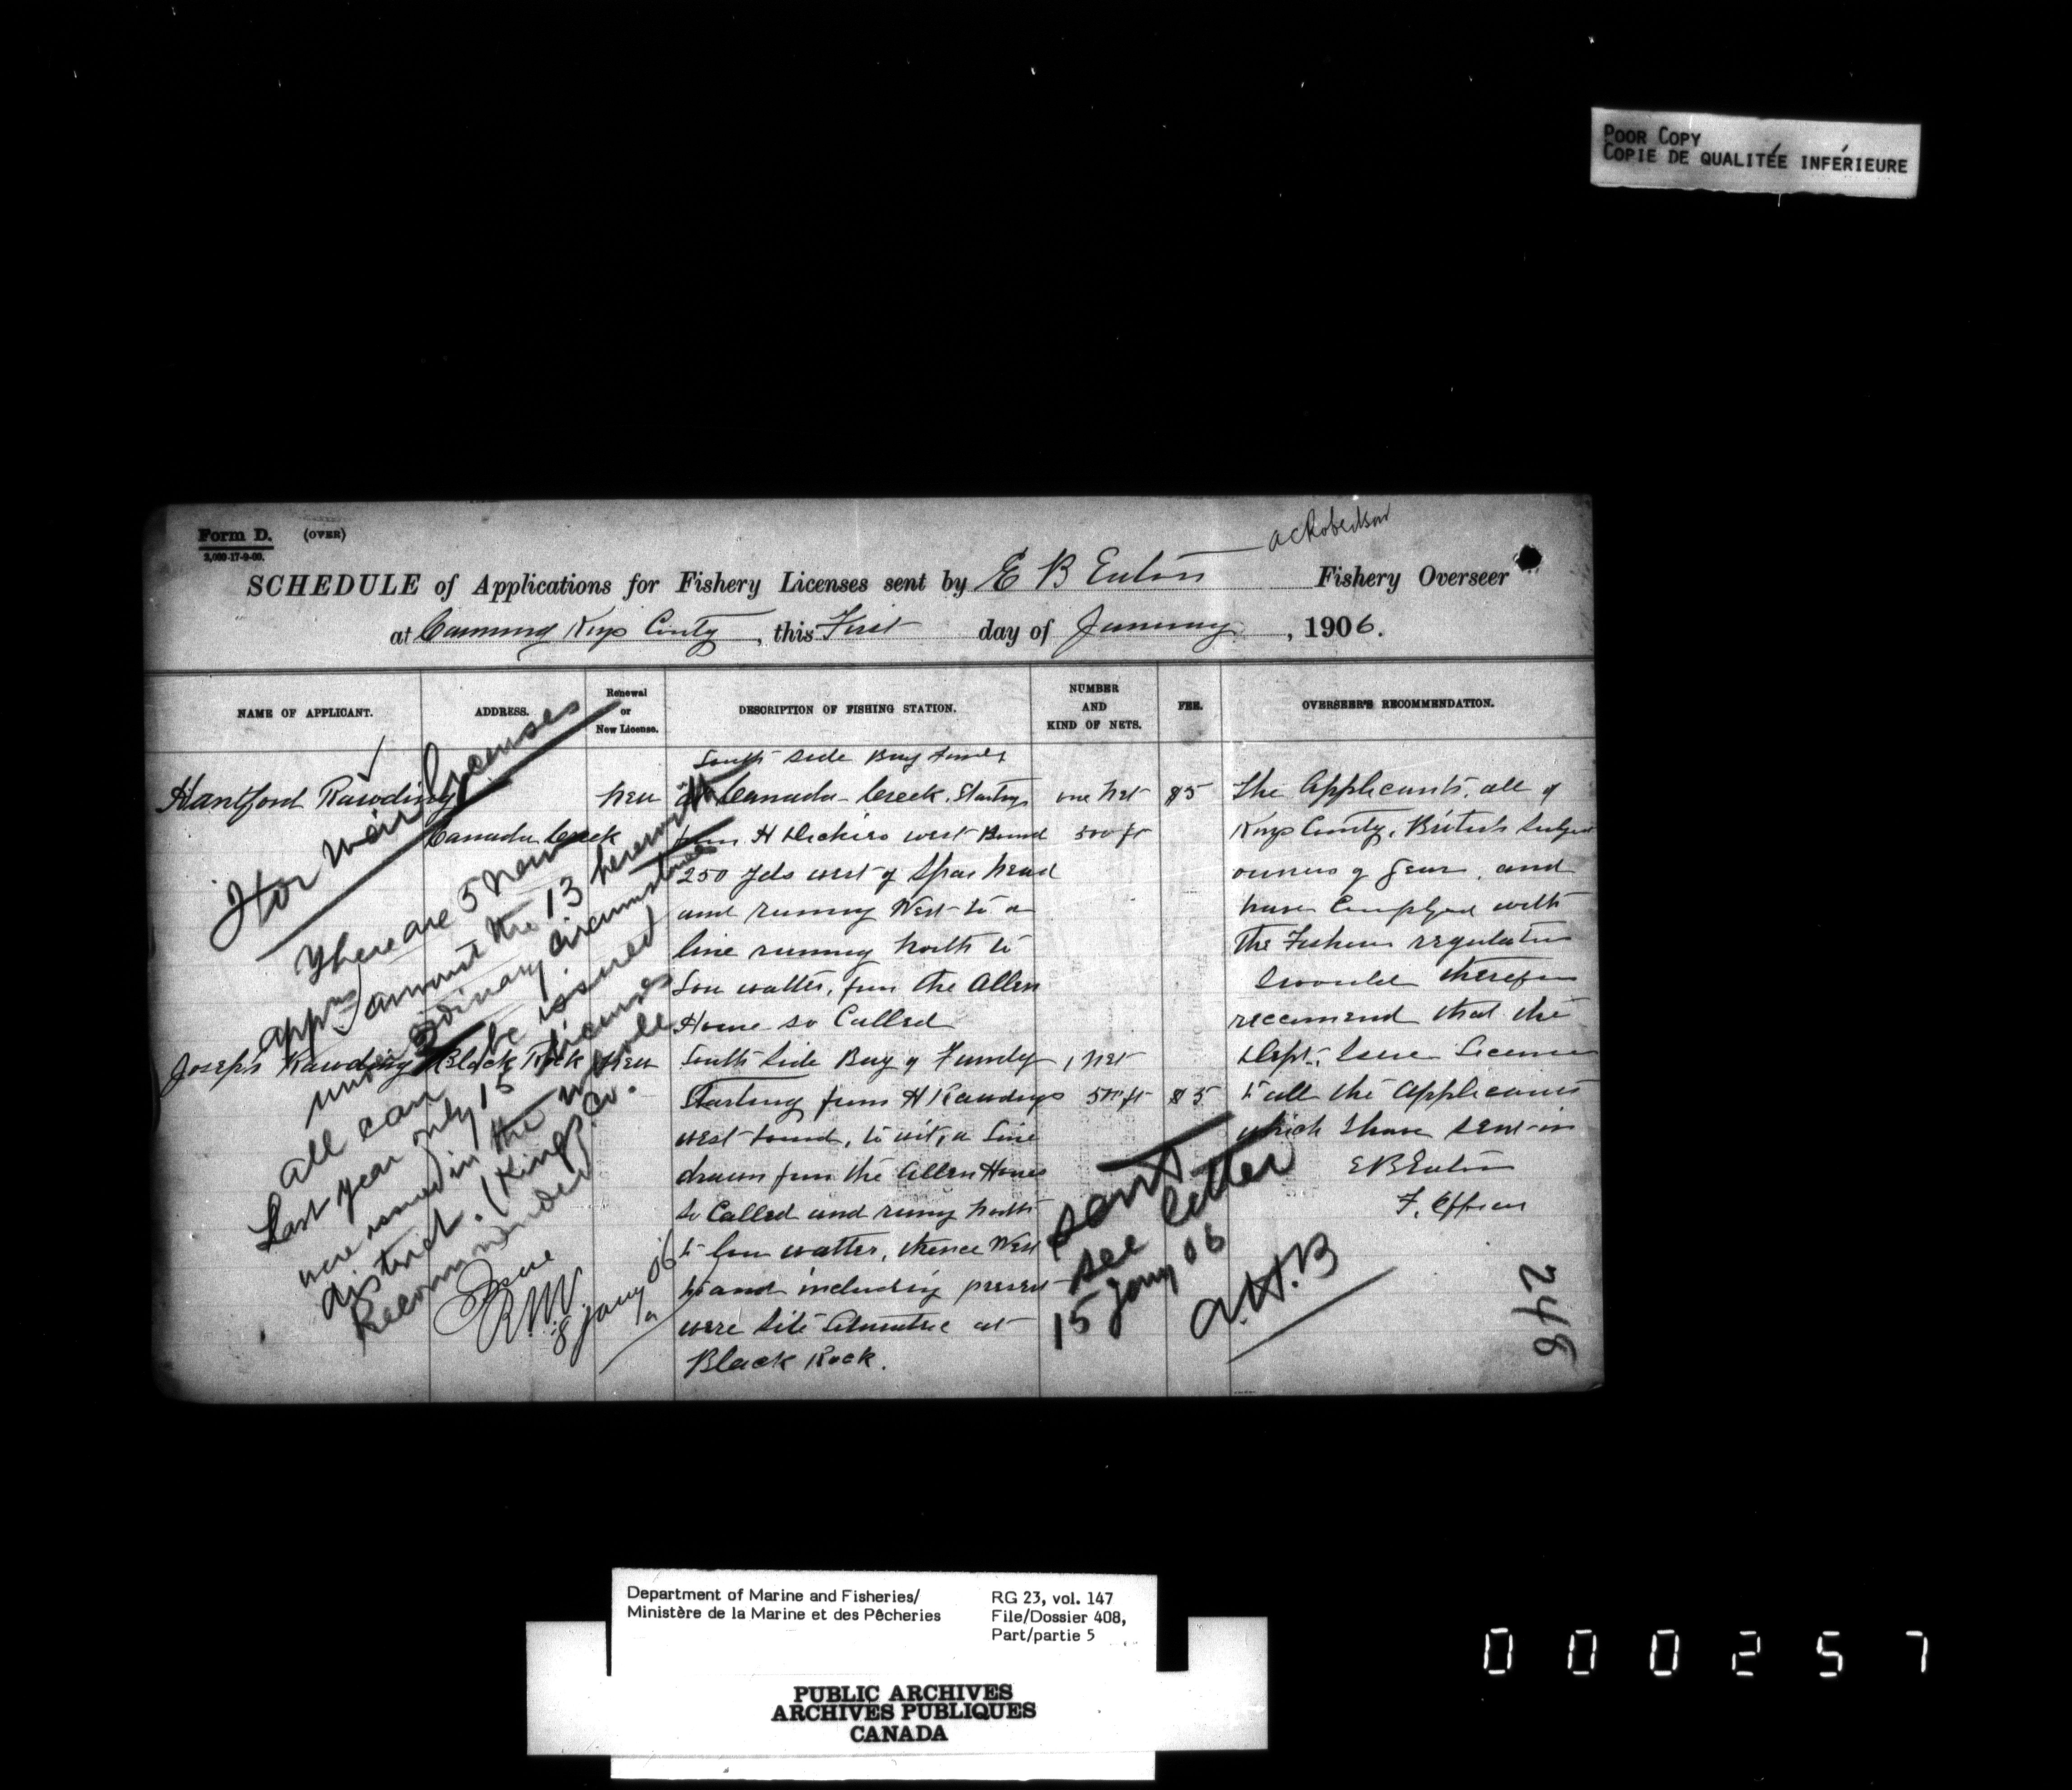 POOR COPY
COPIE DE QUALITÉE INFÉRIEURE
Form D. (OVER)
2,000-17-9-00.
A C Robertson
SCHEDULE of Applications for Fishery Licenses sent by E B Eaton Fishery Overseer
at Canning Kings County, this First day of January, 1906.
NAME OF APPLICANT.
ADDRESS.
Renewal
or
New License.
DESCRIPTION OF FISHING STATION.
NUMBER
AND
KIND OF NETS.
FEE.
OVERSEER'S RECOMMENDATION.
Hantford Rawding
Canada Creek
new
South side Bay Fundy
at Canada Creek, Starting
from H Dickies west Bound
250 yds west of Spar head
and runing West to a
line runing north to
Low watter, from the Allen
House so Called
one net
500 ft
$5
Joseph Rawding
Black Rock
new
South Side Bay of Fundy
Starting from H Rawdings
west bound, to wit, a line
drawn from the Allen House
so Called and runing north
to low watter, thence West
and including present
were site situate at
Black Rock.
1 net
500 ft
$5
The Applicants, all of
Kings County, British Subjects
owners of gear, and
have Complyed with
the Fishery regulation
I would therefore
reccomend that the
Dept, Issue License
to all the Applicants
which I have sent in
E B Eaton
F. Officer
4 for Weir licenses
There are 5 new
appns amongst the 13 herewith
under ordinary circumstances
all can be issued
Last year only 15 licenses
were issued in the whole
district. (Kings Co.
Recommended
Issue
R.W.
8 Jany 06
Sent
see letter
15 Jany 06
A.H.B
248
Department of Marine and Fisheries/
Ministère de la Marine et des Pêcheries
RG 23, vol. 147
File/Dossier 408,
Part/partie 5
PUBLIC ARCHIVES
ARCHIVES PUBLIQUES
CANADA
000257